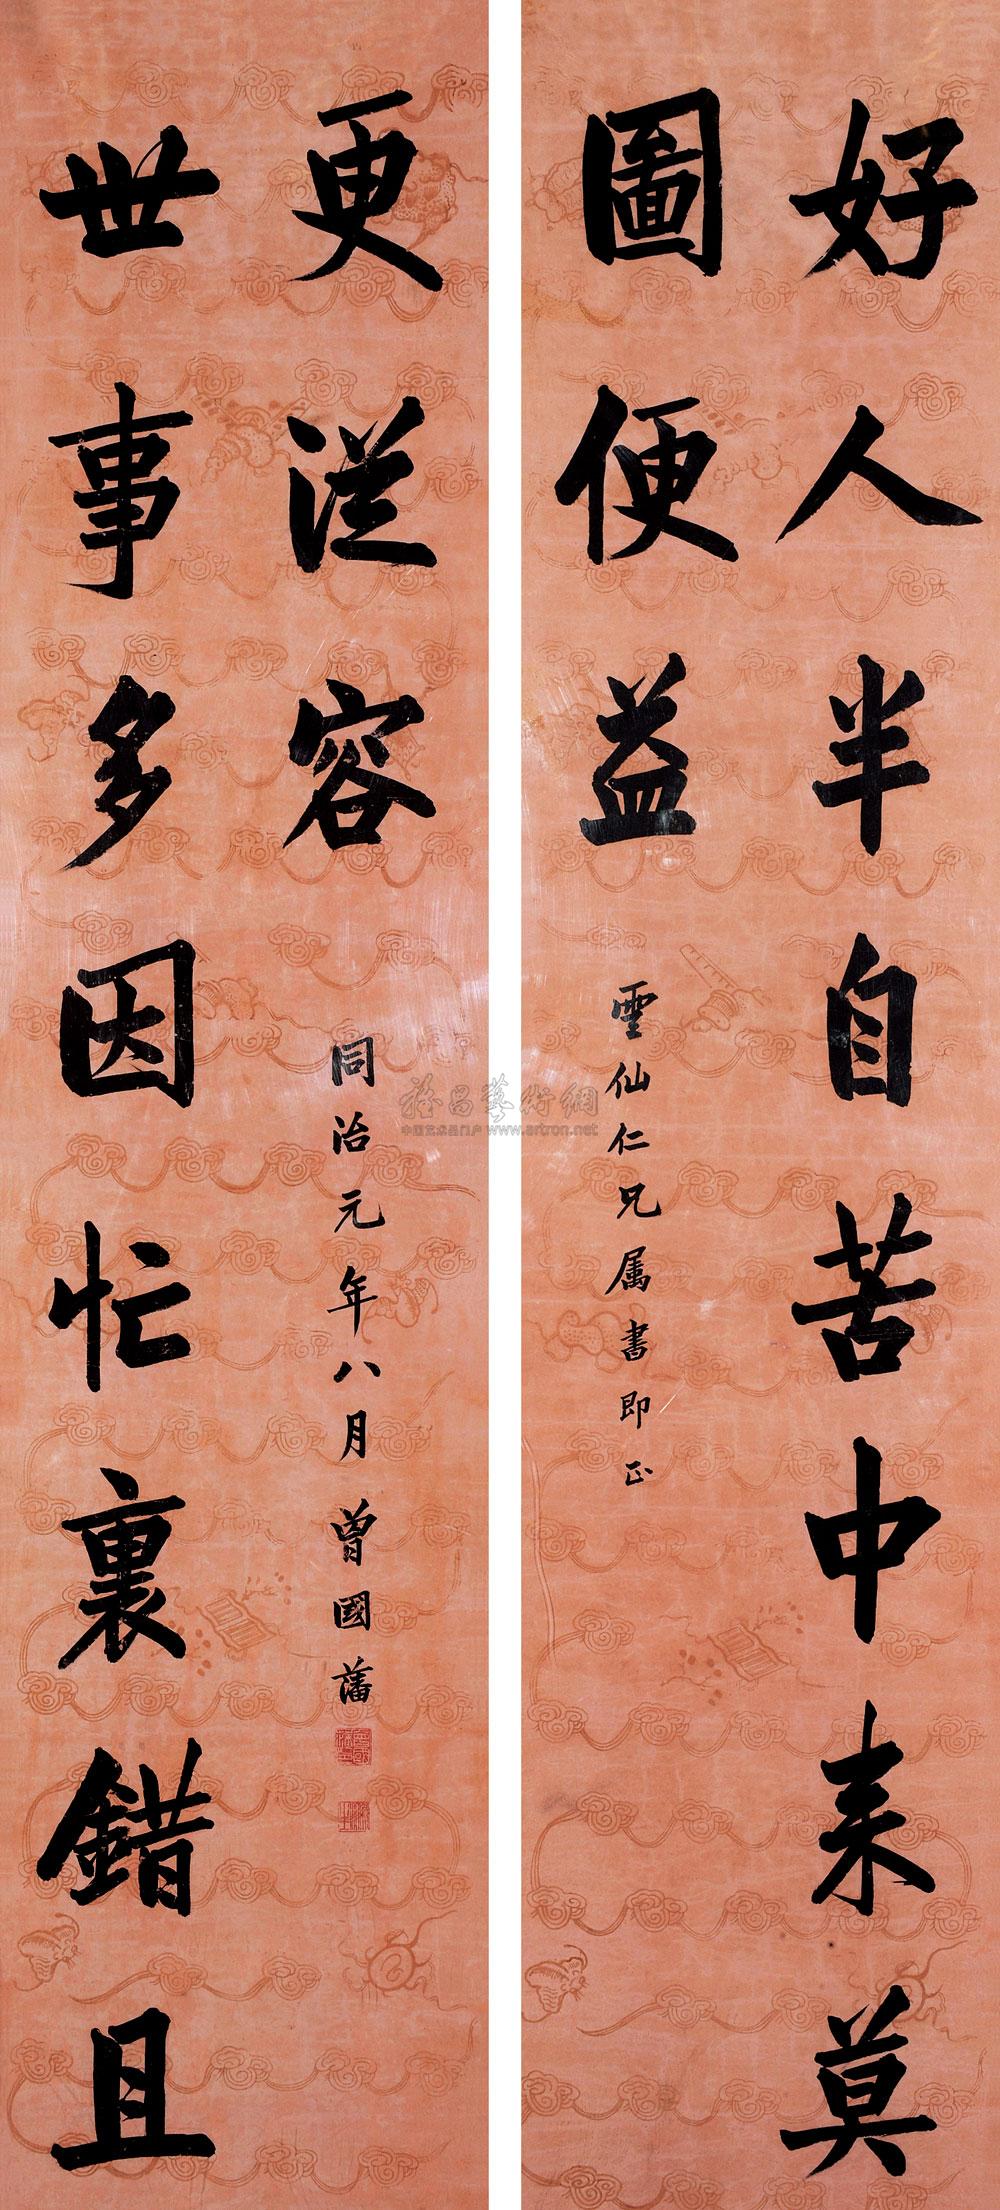 好人半自苦中来莫
圖便益
雲仙仁兄属書即正
世事多因忙裏錯且
更從容
同治元年八月曾國藩
雅昌藝術網
中国艺术品门户 www.artron.net